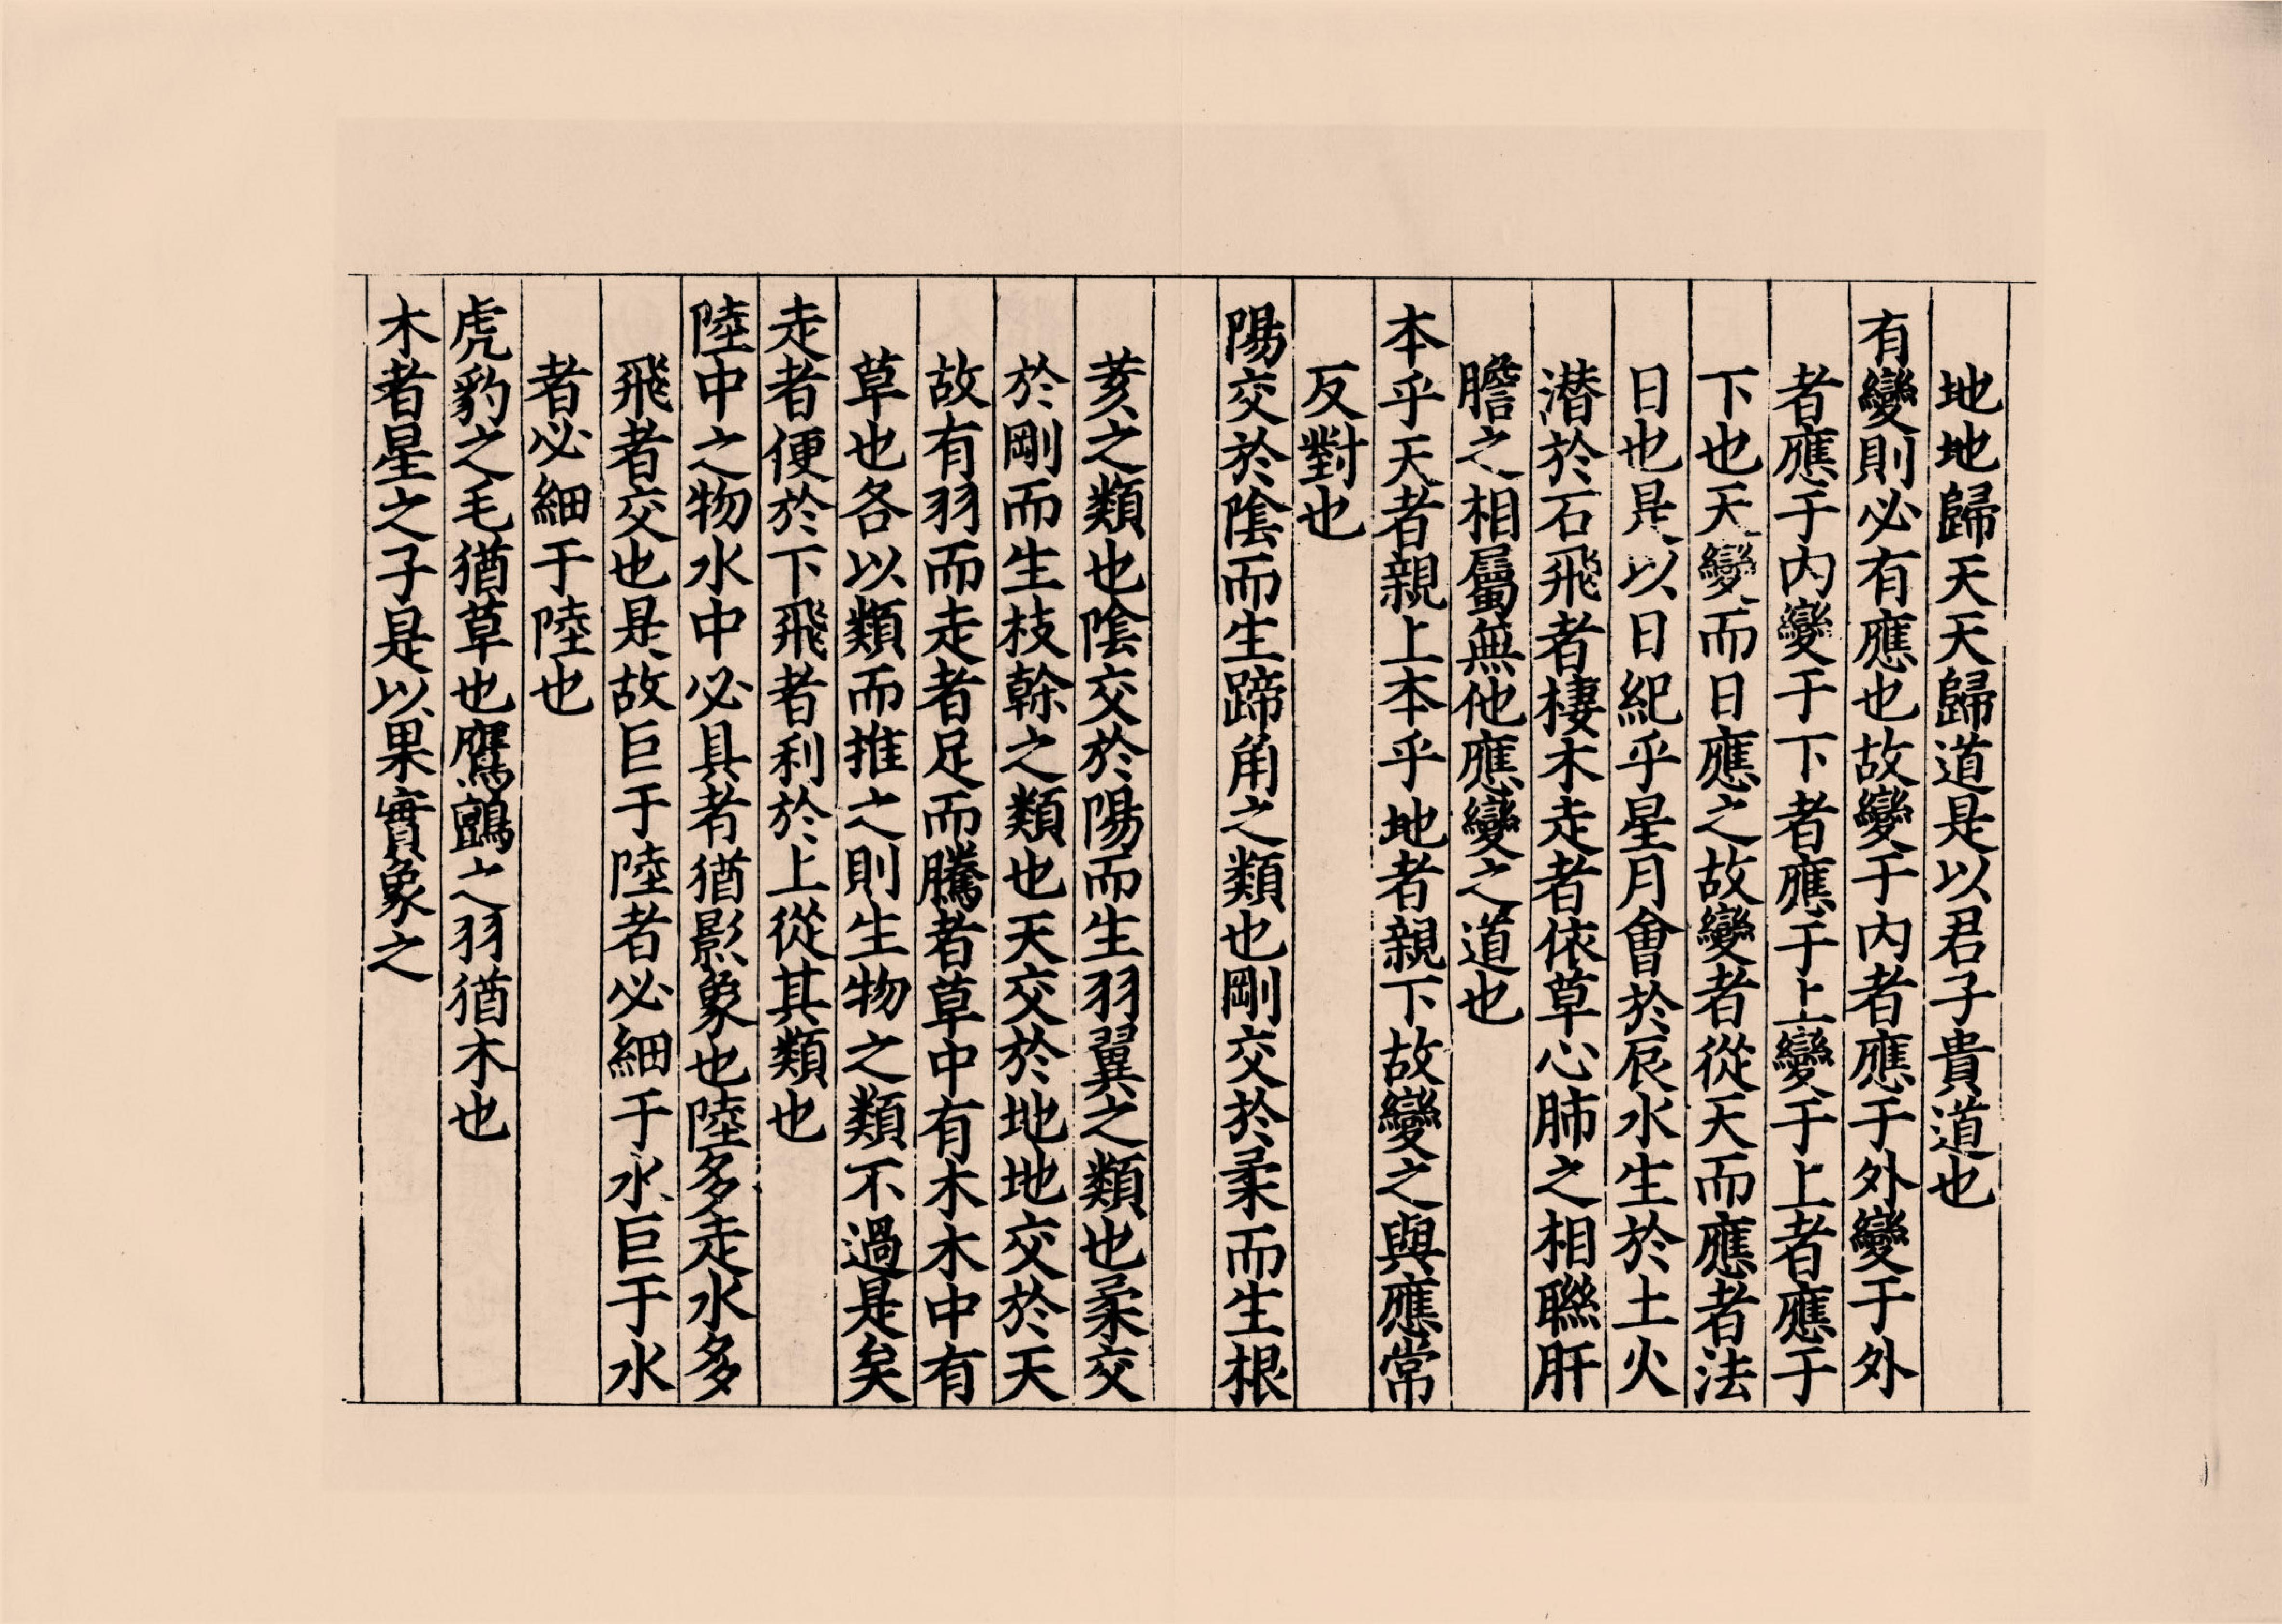 地地歸天天歸道是以君子貴道也
有變則必有應也故變于內者應于外變于外
者應于內變于下者應于上變于上者應于
下也天變而日應之故變者從天而應者法
日也是以日紀乎星月會於辰水生於土火
潛於石飛者棲木走者依草心肺之相聯肝
膽之相屬無他應變之道也
本乎天者親上本乎地者親下故變之與應常
反對也
陽交於陰而生蹄角之類也剛交於柔而生根
荄之類也陰交於陽而生羽翼之類也柔交
於剛而生枝幹之類也天交於地地交於天
故有羽而走者足而騰者草中有木木中有
草也各以類而推之則生物之類不過是矣
走者便於下飛者利於上從其類也
陸中之物水中必具者猶影象也陸多走水多
飛者交也是故巨于陸者必細于水巨于水
者必細于陸也
虎豹之毛猶草也鷹鸇之羽猶木也
木者星之子是以果實象之